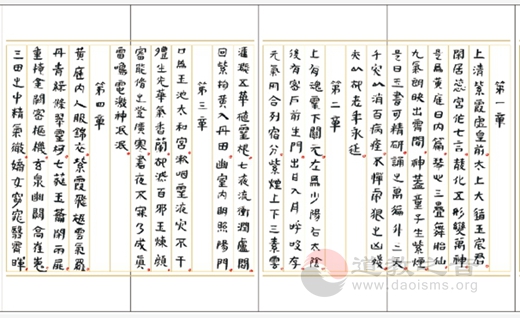 第一章
上清紫霞虛皇前太上大道玉宸君
閒居蕊宮作七言散化五形變萬神
是為黃庭曰內篇琴心三疊舞胎仙
九氣朗映出霄間神蓋童子生紫煙
是曰玉書可精研詠之萬遍升三天
千災以消百病痊不憚虎狼之凶殘
亦以卻老年永延
第二章
上有魂靈下關元左為少陽右太陰
後有密戶前生門出日入月呼吸存
元氣所合列宿分紫煙上下三素雲
灌溉五華植靈根七液流衝潤廬間
回紫抱黃入丹田幽室內明照陽門
第三章
口為玉池太和宮漱咽靈液災不干
體生光華氣香蘭卻滅百邪玉煉顏
審能修之登廣寒晝夜不寐乃成真
雷鳴電激神泯泯
第四章
黃庭內人服錦衣紫霞飛裙雲氣羅
丹青綠條翠靈柯七蕤玉籥閉兩扉
重掩金關密樞機玄泉幽關高崔巍
三田之中精氣微嬌女窈窕翳霄暉
道教之音
www.daoisms.org